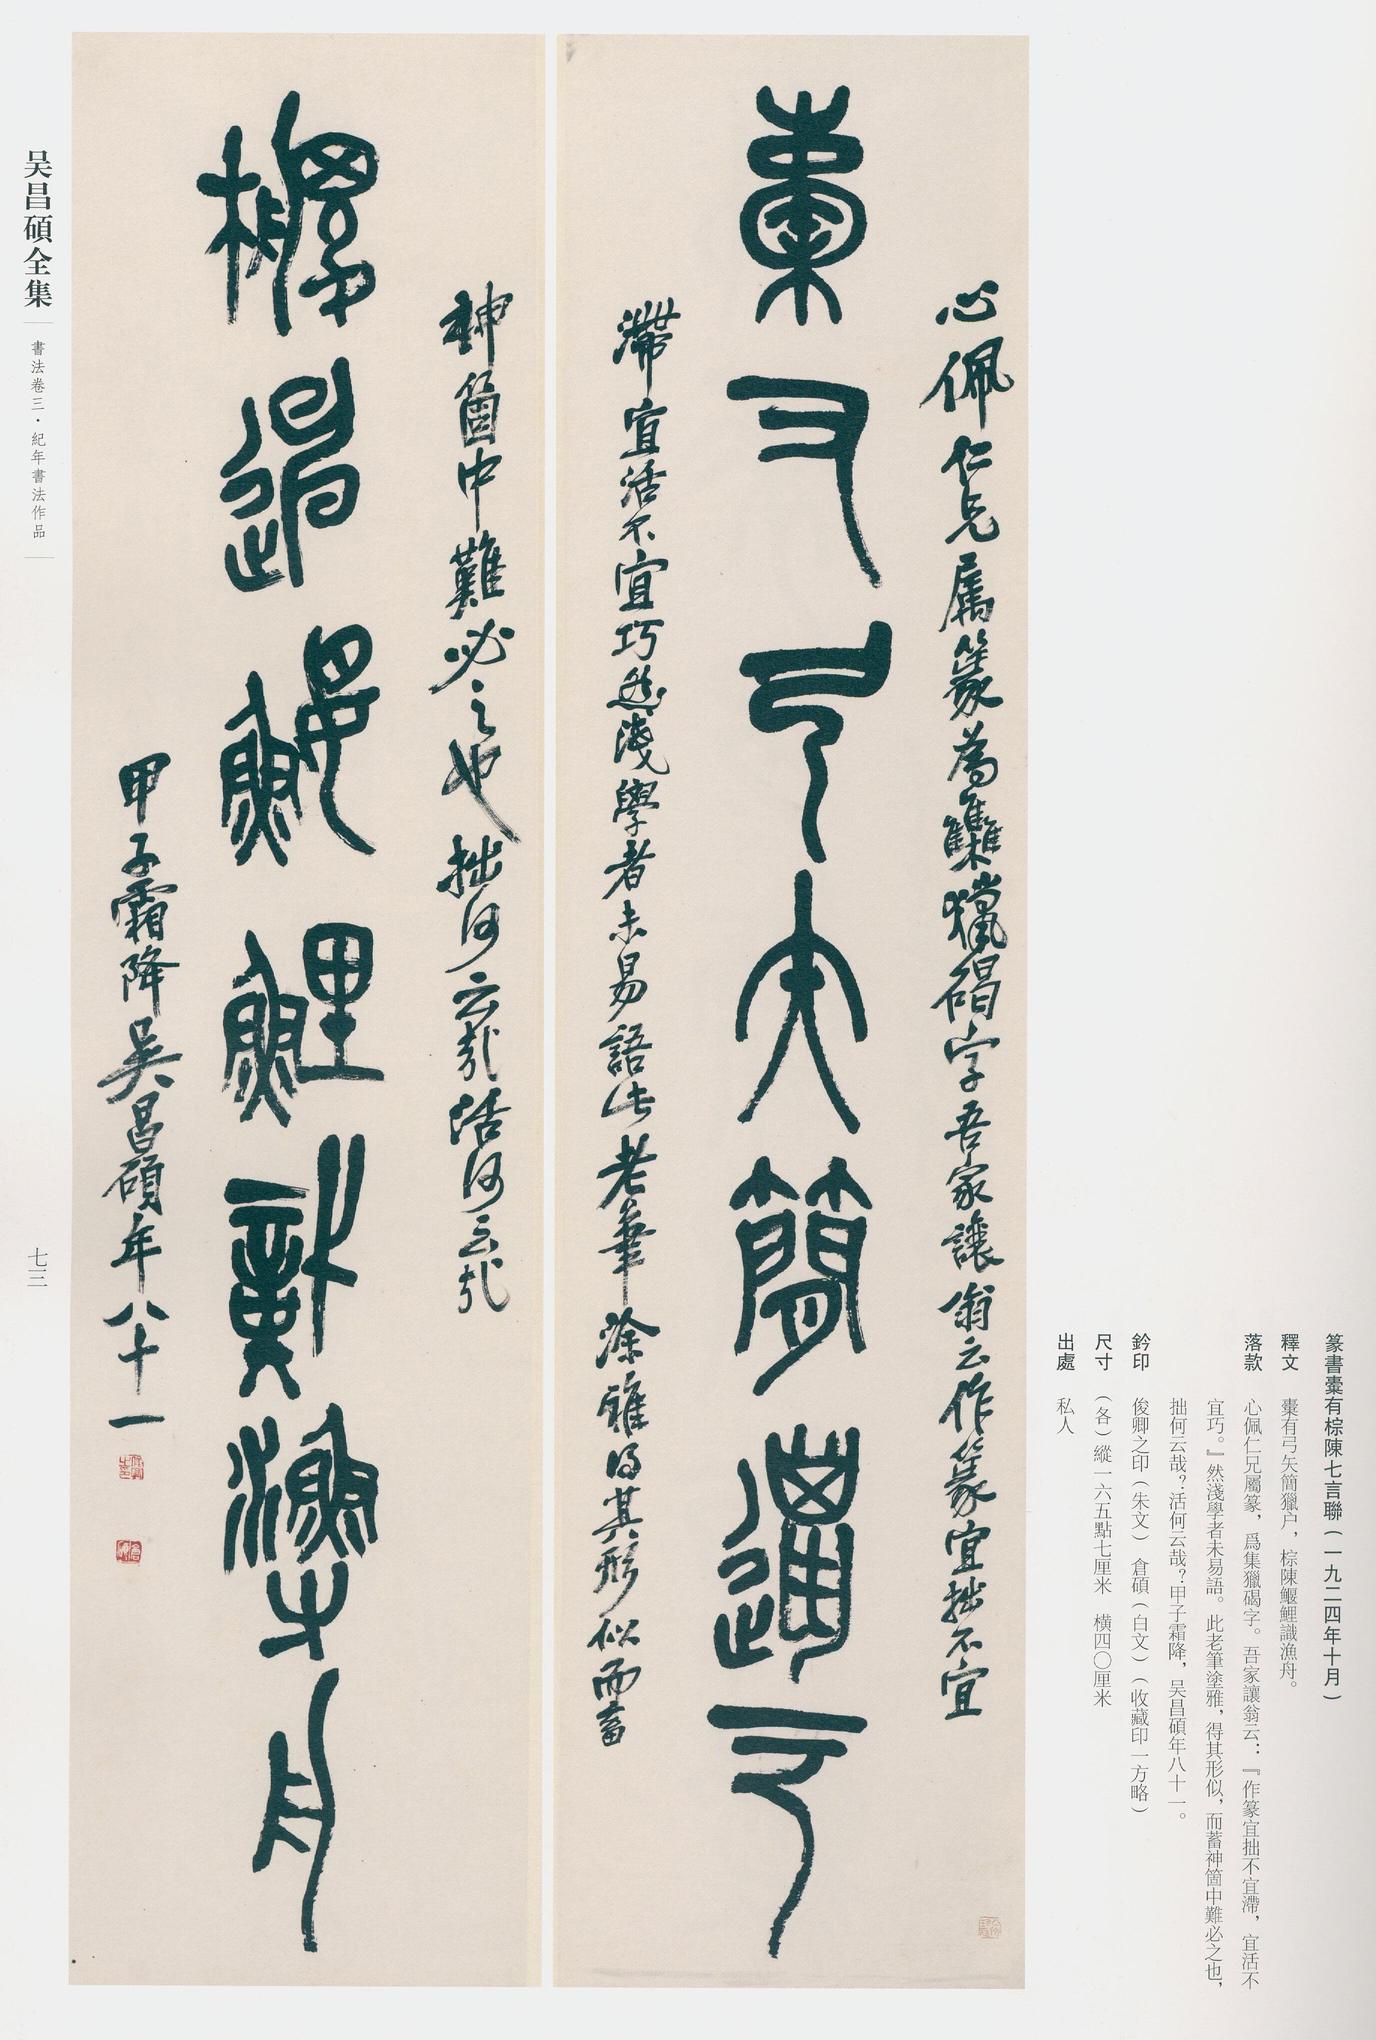 篆書橐有棕陳七言聯(一九二四年十月)
釋文 橐有弓矢簡獵户，棕陳鰋鯉識漁舟。
落款 心佩仁兄屬篆，爲集獵碣字。吾家讓翁云：『作篆宜拙不宜滯，宜活不
宜巧。』然淺學者未易語。此老筆塗雅，得其形似，而蓄神箇中難必之也，
拙何云哉？活何云哉？甲子霜降，吴昌碩年八十一。
鈐印 俊卿之印(朱文) 倉碩(白文) (收藏印一方略)
尺寸 (各)縱一六五點七厘米 橫四〇厘米
出處 私人
心佩仁兄屬篆為雧獵碣字吾家讓翁云作篆宜拙不宜
橐又弓矢簡邋户
滯宜活不宜巧然淺學者未易語此老筆涂雅得其形似而蓄
神箇中難必之也拙何云哉活何云哉
鰋鯉漁舟
甲子霜降吴昌碩年八十一
吴昌碩全集
書法卷三·紀年書法作品
七三